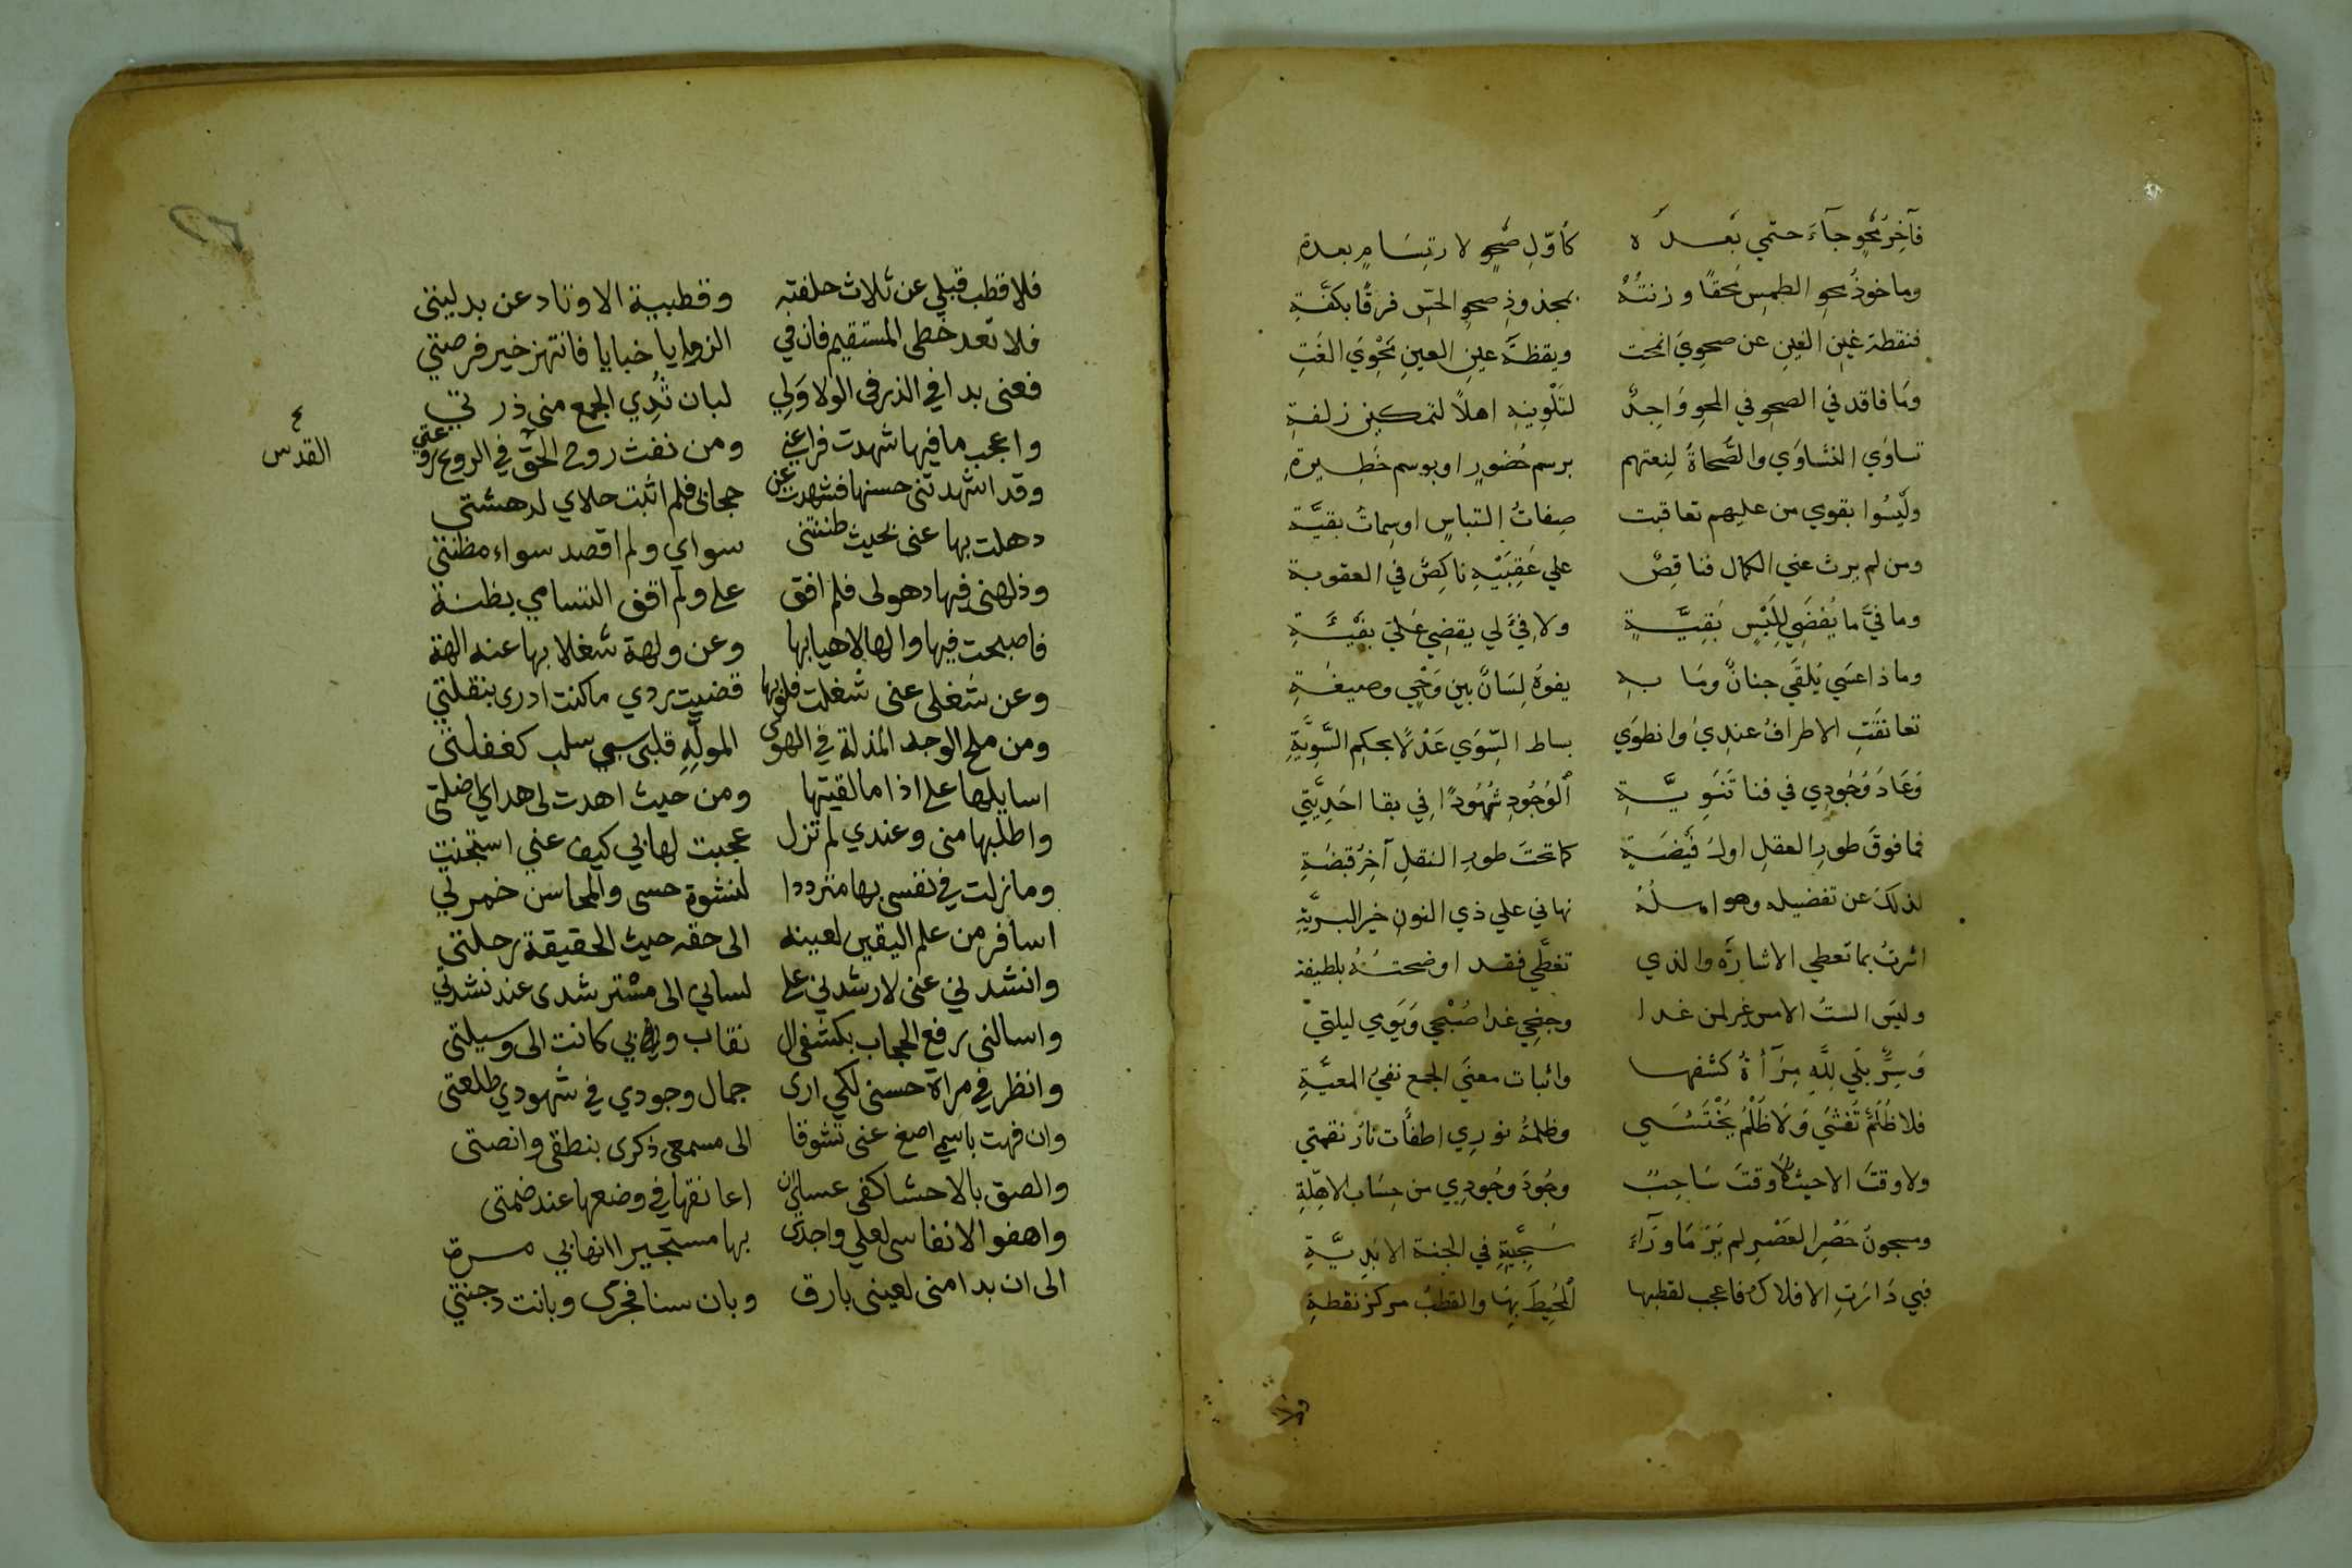 فآخِرُ مَحْوٍ جآءَ حتمي بَعـــدَه كأوّلِ صَحْوٍ لارتِسَامٍ بعدةِ
وماخوذُ محوِ الطمِس مَحقًا وزنتُهُ بمجذوذِ صحوِ الحسِّ فرقًا بكفَّةِ
فنقطة غينِ الغينِ عن صحوي انمحت ويقظة عينِ العينِ مَحْوِيَ الغَتِ
ومَا فاقد في الصحوِ في المحوِ وَاجِدٌ لتَلْوِينِهِ اهلًا لتمكينِ زلفةِ
تساوي النشاوَي والصُّحاةُ لِنعتهم برسم حُضورٍ او بوسم حَطِــيرةِ
ولَيْسُوا بقومي من عليهم تعاقبت صِفاتُ التباسٍ اوسِماتُ بقيَّة
ومن لم يرث عني الكمال فناقِصٌ علي عَقِبَيْهِ ناكِصٌ في العقوبة
وما فيَّ ما يُفضِي لِلَبْسٍ بَقِيَّــةٍ ولا فيْءَ لي يقضِي عَليَّ بفَيْـئَــةِ
وماذا عسَي يُلقَي جنانٌ ومَا بــهِ يفوهُ لِسَانٌ بين وَحْيٍ وصيغةِ
تعانقَتِ الاطرافُ عندِي وانطوَي بساط السِّوَي عَدْلًا بحكمِ السَّوِيَّةِ
وَعَادَ وُجُودِي في فنا ثَنَوِيَّــةِ ٱلوُجُودِ شُهُودًا فِي بقا احَدِيَّتِي
فما فوقَ طورِ العقلِ اولُ فَيْضَــةٍ كما تحتَ طورِ النقلِ آخِرُ قبضةِ
لذلكَ عن تفضيله وهو اهلهُ نهاني علي ذي النون خير البريَّةِ
اشرتُ بما تعطي الاشارَةُ والذي تغطَّي فقــد اوضحتــهُ بلطيفة
وليسَ الستُ الامسِ غيرلمن غدا وجنحِي غدا صُبْحي وَيَومي ليلتي
وَسِرُّ بَلَي لِلَّهِ مِرْآةُ كشفهــا واثبات معنَي الجمع نفيُ المعيَّةِ
فلا ظُلَمٌ تَغْشَي وَلَا ظُلْمُ يُخْتَشَــي وظلمةُ نورِي اطفأت نارُ نقمتي
ولا وقتَ الا حيثُ لا وقتَ حَاسِبٌ وجُودَ وُجُودِيي من حِسَاب الاهِلّةِ
ومسجونُ حَصْرِ العَصْرِ لم يَرَ مَا وَرَآءَ سَجِيَّةِ في الجنة الابديــَّةِ
فبي دَارَتِ الافلاكُ فاعجب لقطبها ٱلمُحِيطِ بهَا والقطبُ مركز نقطةِ
ولا
فلا قطب قبلي عن ثلاث خلفته وقطبية الاوتاد عن بدليتي
فلا تعد خطي المستقيم فان في الزوايا خبايا فانتهز خير فرصتي
فعنى بدا في الذر فى الولا وَلِي لبان ثُدِي الجمع منى درتي
واعجب ما فيها شهدت فراعني ومن نفث روح الحقّ في الروع روعتي
القدس ع
وقد اشهدتنى حسنها فشهدت عن حجاى فلم اثبت حلاي لدهشتي
دهلت بها عنى بحيث ظننتنى سواي ولم اقصد سواء مظنتي
وذلهنى فيها دهولى فلم افق على ولم اقف التنسامي بظنــة
فاصبحت فيها والها لاهيا بها وعن ولهة شغلا بها عنه الهة
وعن شغلى عنى شغلت فلو بها قضيت ردي ما كنت ادرى بنقلتي
ومن ملح الوجد المذلة في الهوى المولّه قلبى سبي سلب كغفلتي
اسايلها على اذا ما لقيتها ومن حيث اهدت لى هداي اضلتى
واطلبها منى وعندي لم تزل عجبت لها بي كيف عني استجنت
وما زلت في نفسى بها مترددا لنشوة حسى والمحاسن خمرتي
اسافر من علم اليقين لعينه الى حقه حيث الحقيقة رحلتي
وانشدني عنى لارشدني على لساني الى مسترشدى عند نشدتي
واسالنى رفع الحجاب بكشفى ال نقاب وبي كانت الى وسيلتى
وانظر في مراة حسنى لكي ارى جمال وجودي في شهودي طلعتى
وان فهت باسمي اصغ عنى تشوقا الى مسمعى ذكرى بنطقى وانصتى
والصق بالاحشا كفى عساى ان اعانقها في وضعها عند ضمتى
واهفو الانفاسى لعلي واجدى بها مستجيرا انها بي مــرت
الى ان بدا منى لعينى بارق وبان سنا فجرى وبانت دجنتي